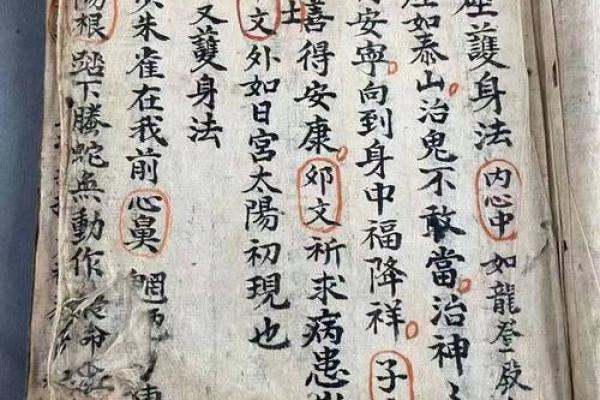 座護身法內心中如龍登殿
座如泰山治鬼不敢當治神
安寧向到身中福降祥子
善得安康郊文祈求病患
文外如日宮太陽初現也
又護身法
朱雀在我前心鼻
陽根踏下騰蛇無動作命